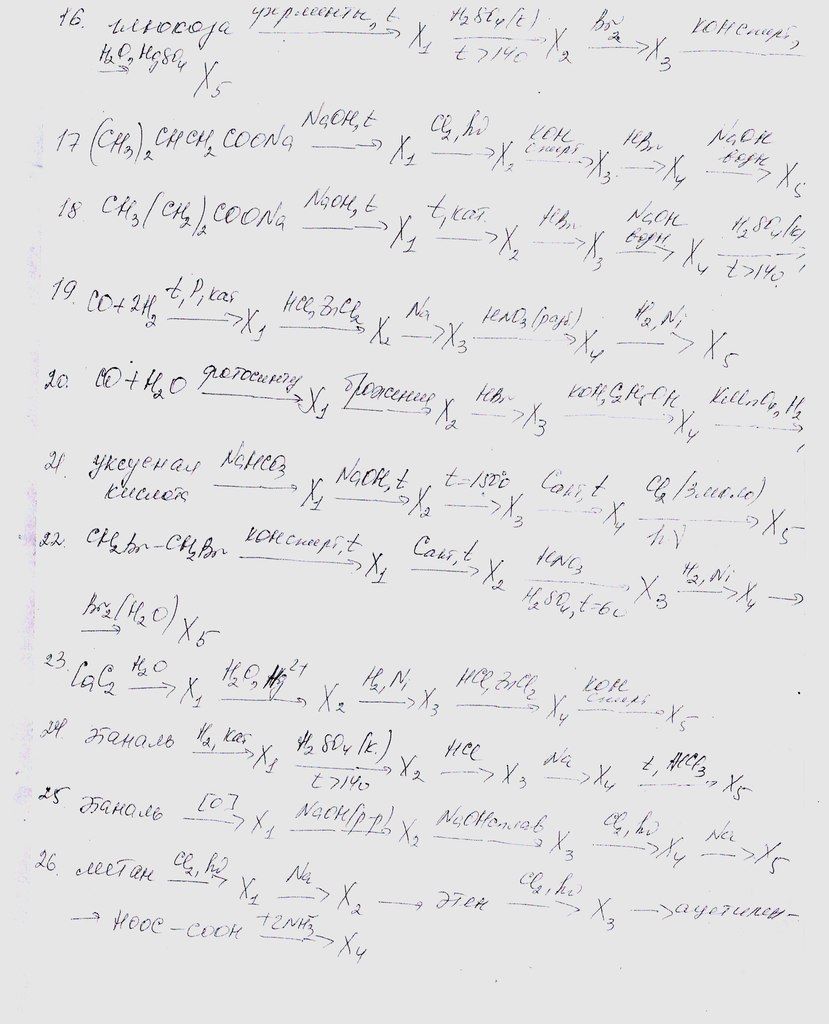 16. глюкоза ферменты, t → X₁ H₂SO₄(к) t>140 → X₂ Br₂ → X₃ KOH спирт,
H₂O, HgSO₄ → X₅
17 (CH₃)₂CHCH₂COONa NaOH, t → X₁ Cl₂, hν → X₂ KOH спирт → X₃ HBr → X₄ NaOH водн → X₅
18. CH₃(CH₂)₂COONa NaOH, t → X₁ t, кат. → X₂ HBr → X₃ NaOH водн → X₄ H₂SO₄(к), t>140
19. CO+2H₂ t, P, кат → X₁ HCl, ZnCl₂ → X₂ Na → X₃ HNO₃(разб) → X₄ H₂, Ni → X₅
20. CO+H₂O фотосинтез → X₁ брожение → X₂ HBr → X₃ KOH, C₂H₅OH → X₄ KMnO₄, H₂
21. уксусная кислота NaHCO₃ → X₁ NaOH, t → X₂ t=1500 → X₃ Cакт, t → X₄ Cl₂ (3 моль) hν → X₅
22. CH₂Br–CH₂Br KOH спирт, t → X₁ Cакт, t → X₂ HNO₃ H₂SO₄, t=60 → X₃ H₂, Ni → X₄ →
Br₂(H₂O) → X₅
23. CaC₂ H₂O → X₁ H₂O, Hg²⁺ → X₂ H₂, Ni → X₃ HCl, ZnCl₂ → X₄ KOH спирт → X₅
24 этаналь H₂, кат → X₁ H₂SO₄(к.) t>140 → X₂ HCl → X₃ Na → X₄ t, AlCl₃ → X₅
25 этаналь [O] → X₁ NaOH(р-р) → X₂ NaOH сплав → X₃ Cl₂, hν → X₄ Na → X₅
26. метан Cl₂, hν → X₁ Na → X₂ → этен Cl₂, hν → X₃ → ацетилен–
→ HOOC–COOH +2NH₃ → X₄